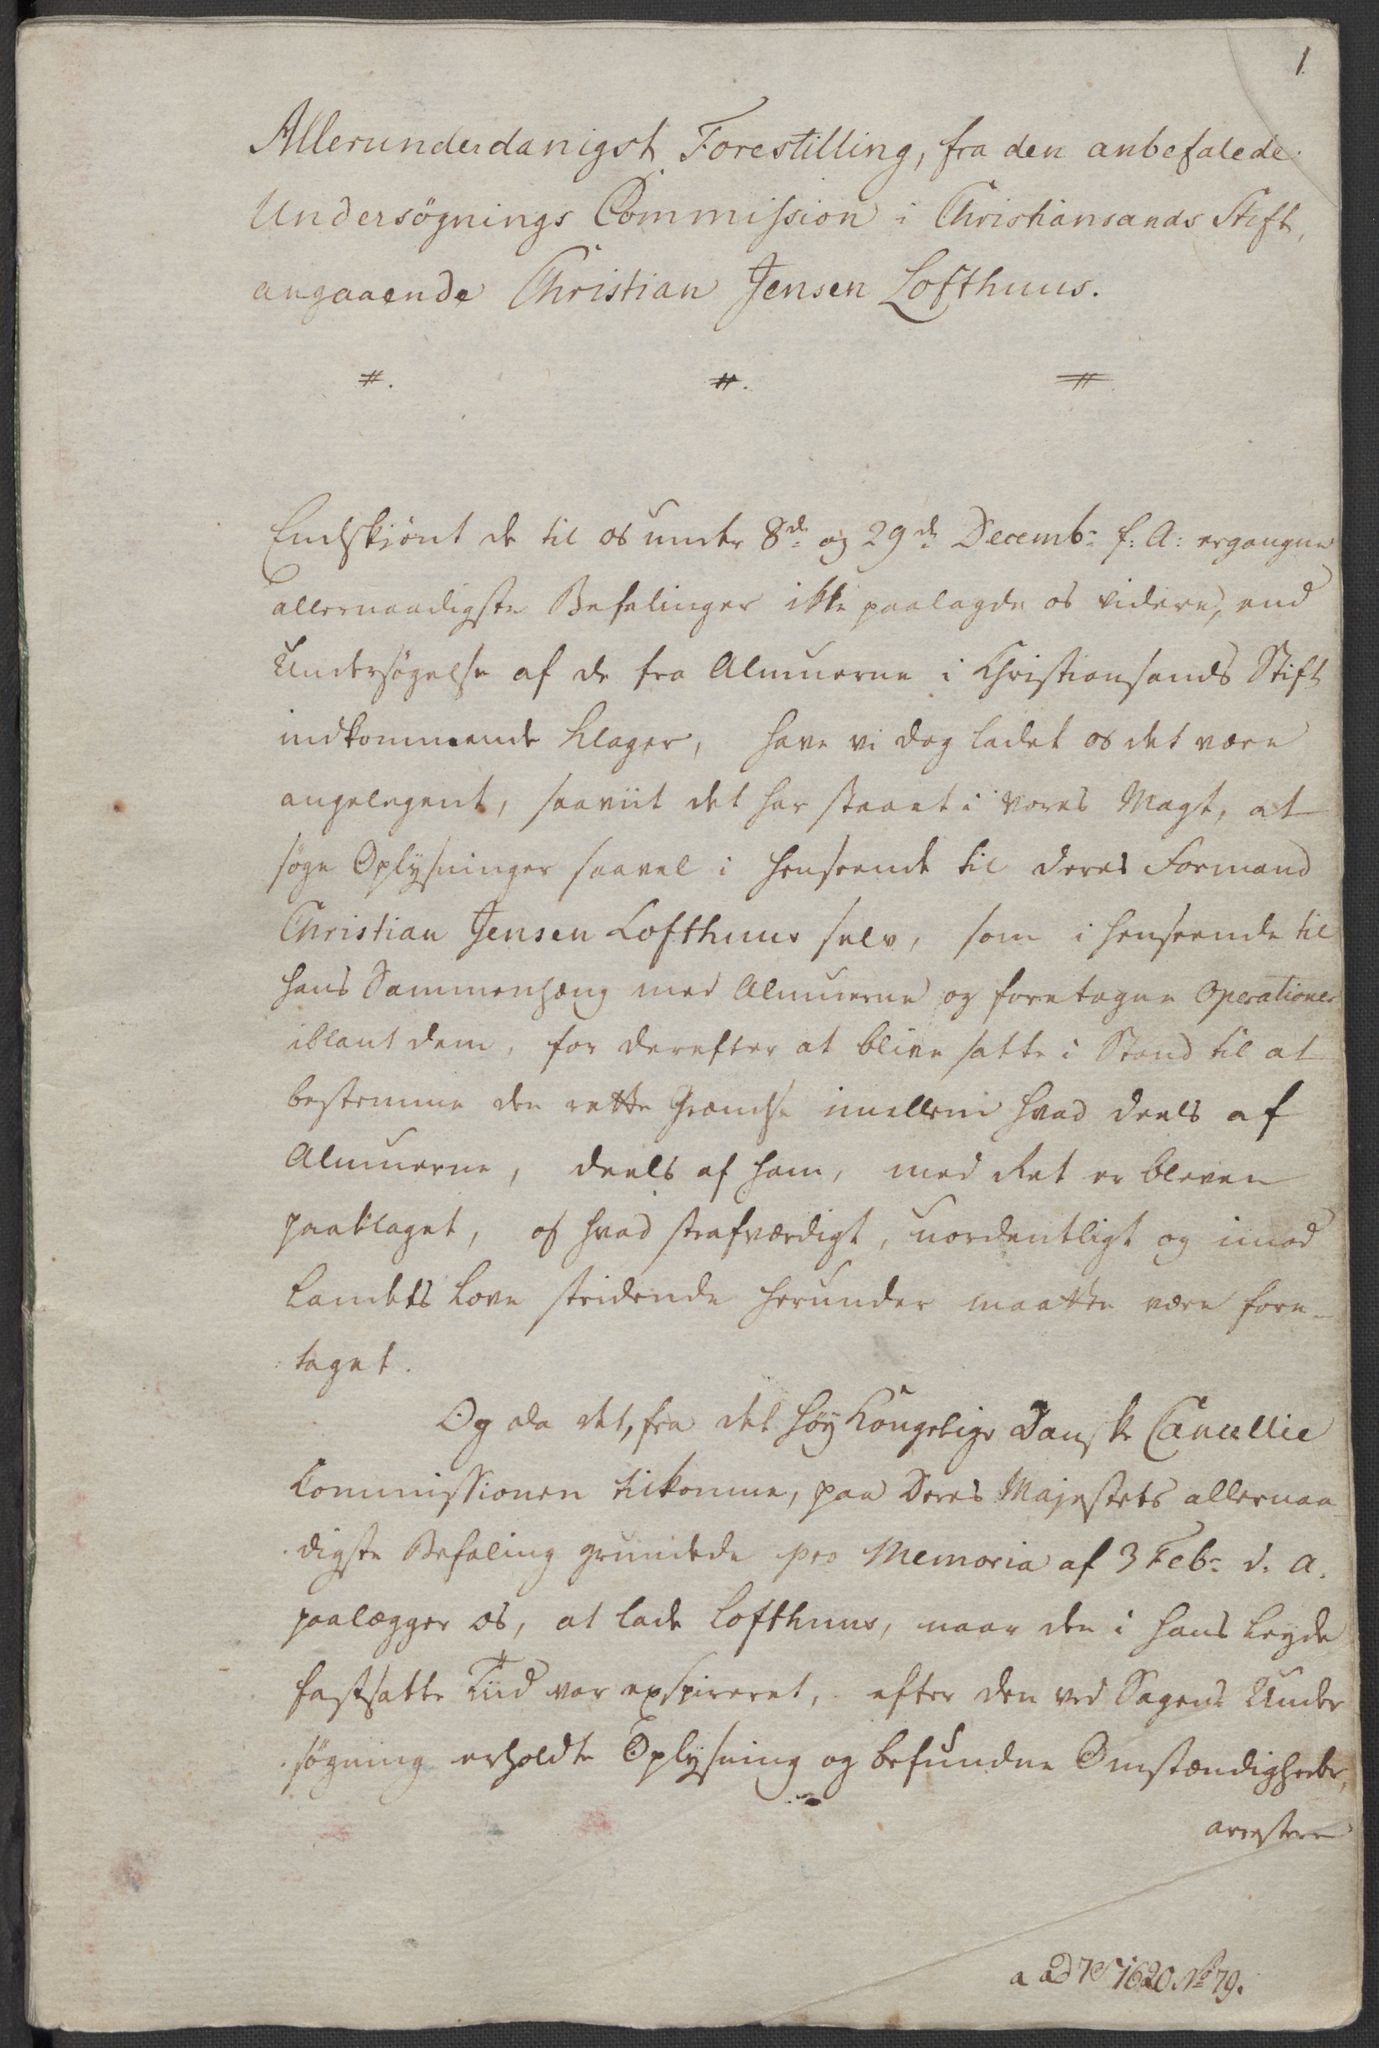 1.
Allerunderdanigst Forestilling, fra den anbefalede
Undersøgnings Commission i Christiansands Stift,
angaaende Christian Jensen Lofthuus.
#. #. #
Endskiønt de til os under 8de og 29de Decembr f: A: ergangne
allernaadigste Befalinger ikke paalagde os videre, end
Undersøgelse af de fra Almuerne i Christiansands Stift
indkommende Klager, have vi dog ladet os det være
angelegent, saaviit det har staaet i vores Magt, at
søge Oplysninger saavel i Henseende til deres Formand
Christian Jensen Lofthuus selv, som i Henseende til
hans Sammenhæng med Almuerne og foretagne Operationer
iblant dem, for derefter at blive satte i Stand til at
bestemme den rette Grændse imellem hvad deels af
Almuerne, deels af ham, med Ret er bleven
paaklaget, og hvad strafværdigt, uordentligt og imod
Landets Love stridende herunder maatte være fore-
taget.
Og da det, fra det høy Kongelige Danske Cancellie
Commissionen tilkomne, paa Deres Majestets allernaa
digste Befaling grundede pro Memoria af 3 Febr d. A.
paalægger os, at lade Lofthuus, naar den i hans Leyde
fastsatte Tiid var exspireret, efter den ved Sagens Under
søgning erholdte Oplysning og befundne Omstændigheder,
arrestere
a ad 1620 No 79.